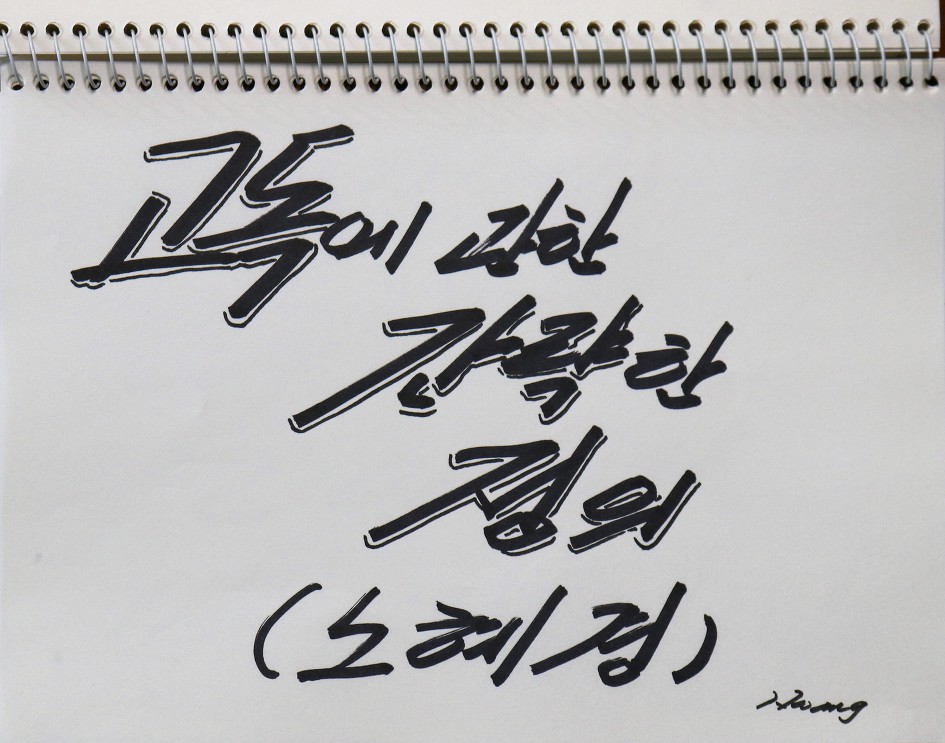 고독에 관한
간략한
정의
(노혜경)
Hwang